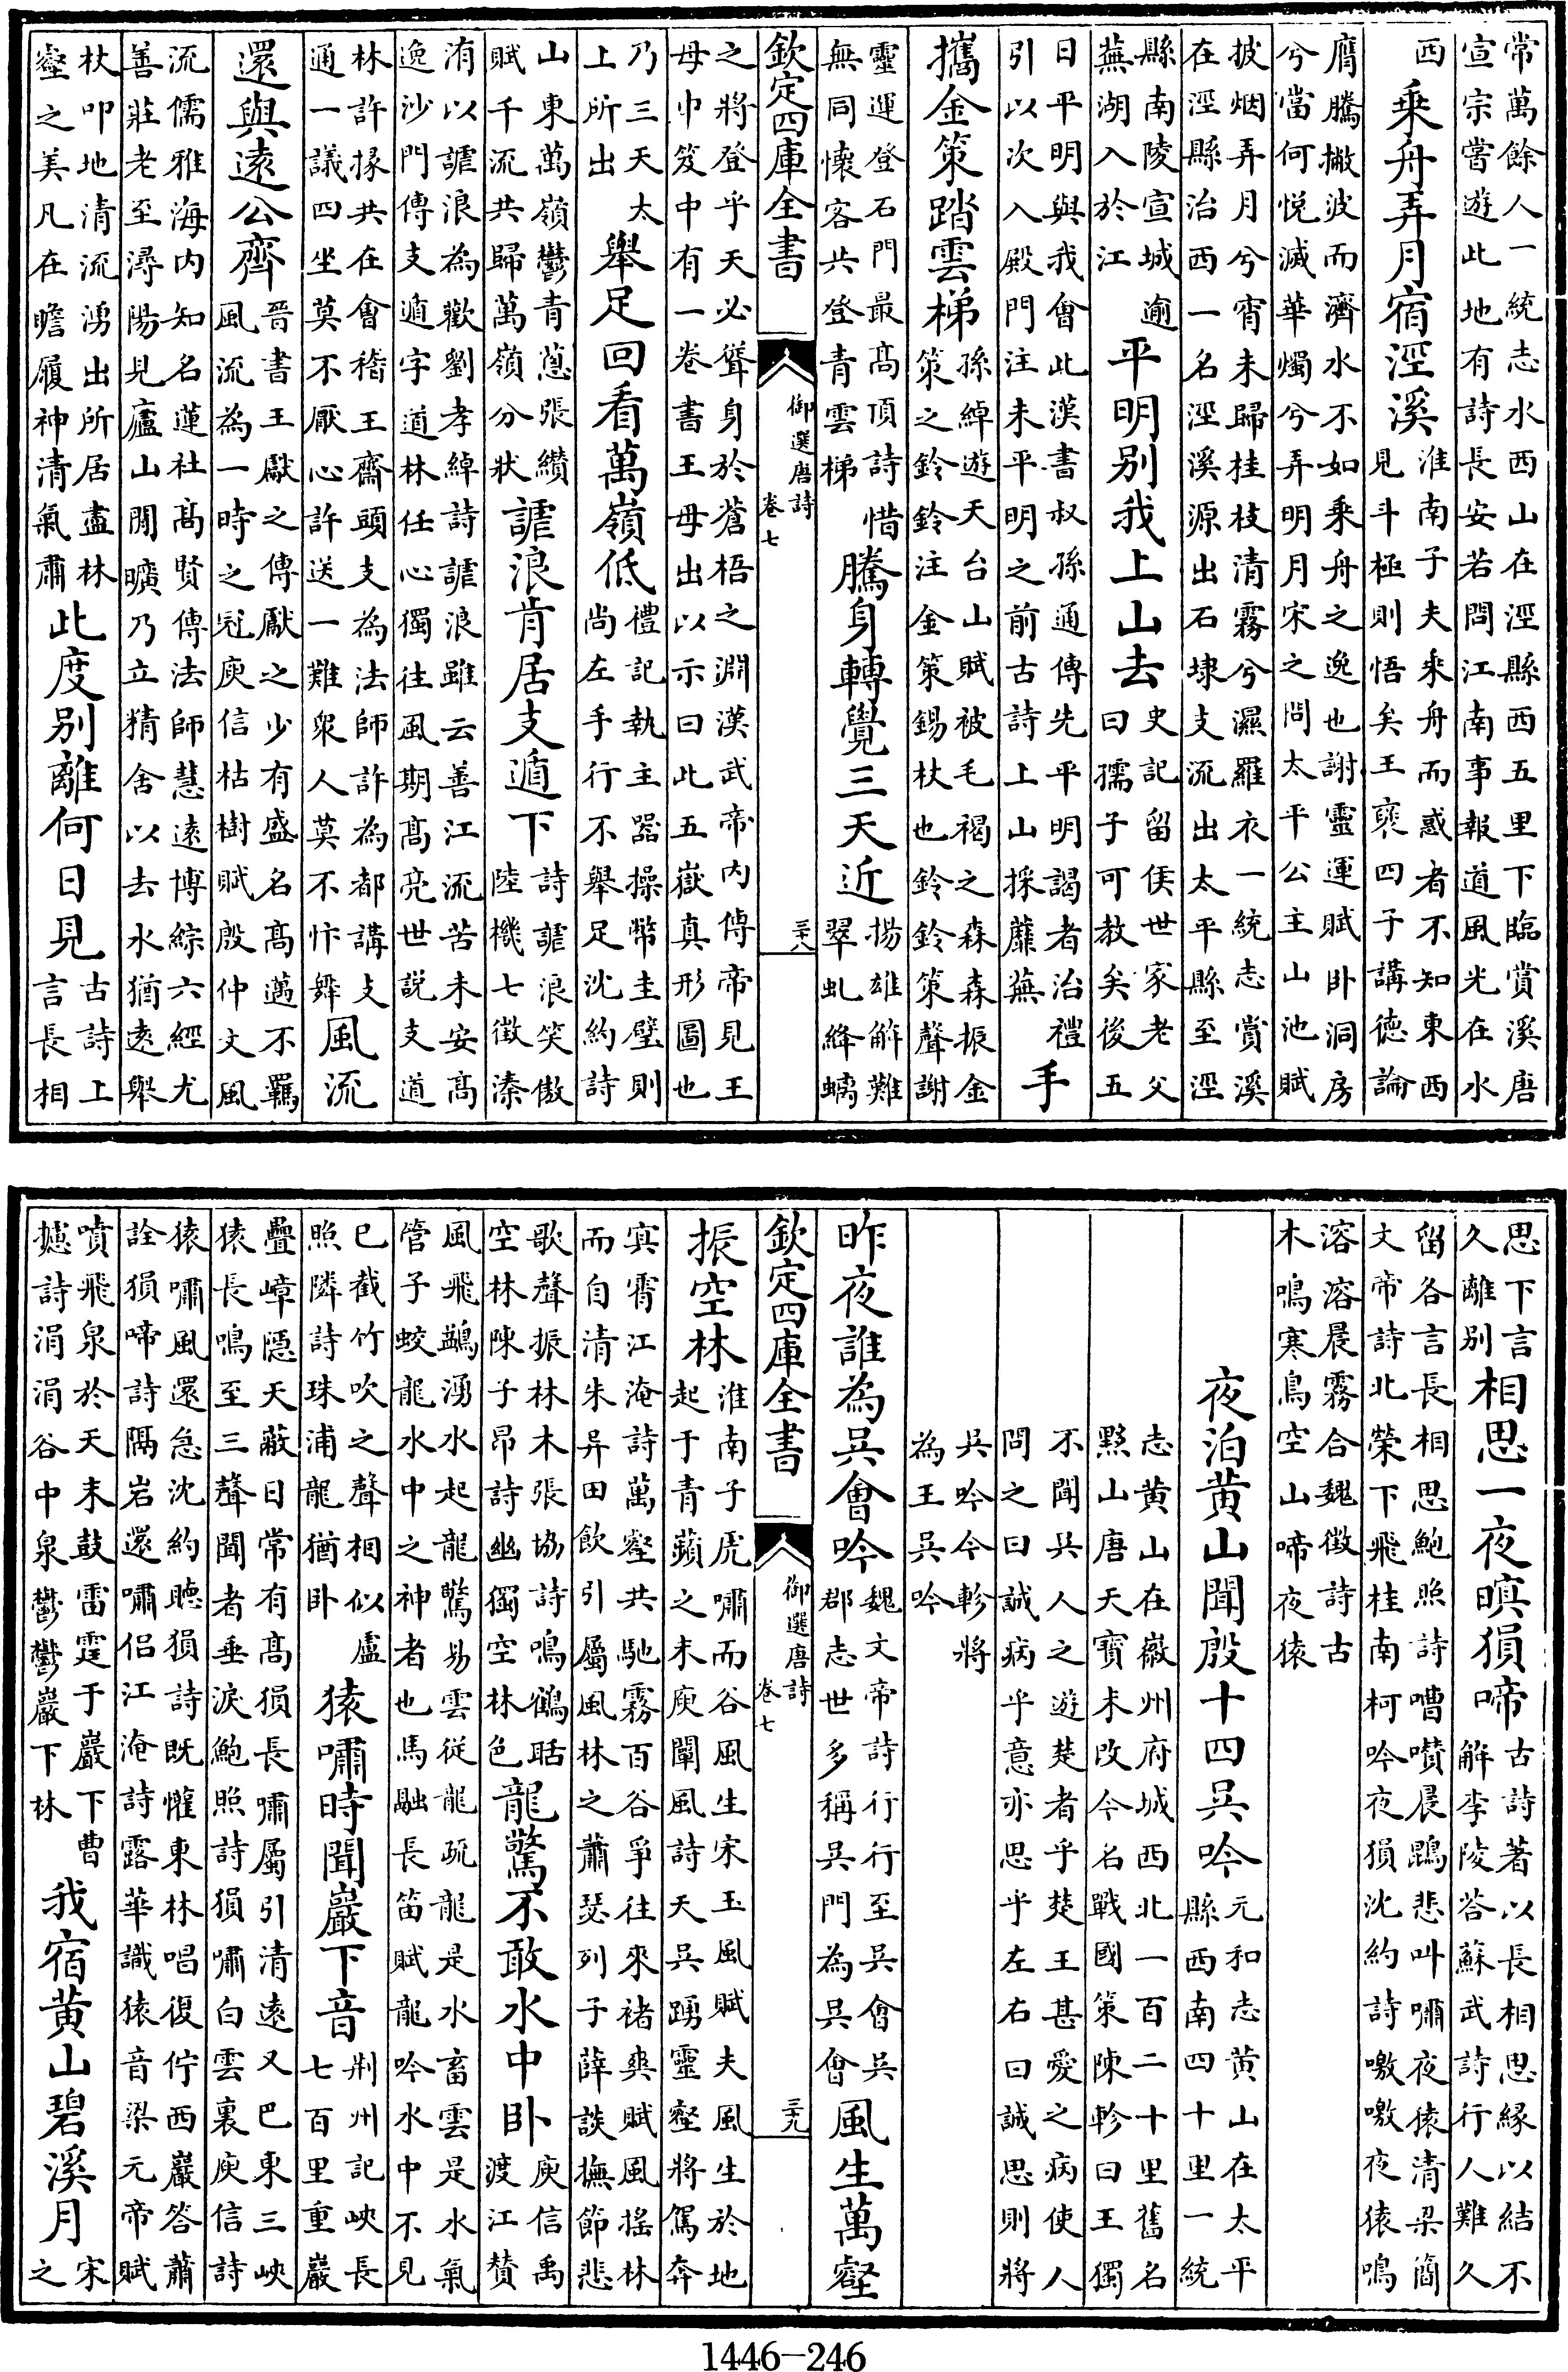 常萬餘人一統志水西山在涇縣西五里下臨賞溪唐
宣宗嘗遊此地有詩長安若問江南事報道風光在水
西
乘舟弄月宿涇溪
淮南子夫乘舟而惑者不知東西
見斗極則悟矣王褒四子講德論
膺騰撇波而濟水不如乘舟之逸也謝靈運賦卧洞房
兮當何悅滅華燭兮弄明月宋之問太平公主山池賦
披烟弄月兮宵未歸桂枝清霧兮濕羅衣一統志賞溪
在涇縣治西一名涇溪源出石埭支流出太平縣至涇
縣南陵宣城逾
蕪湖入於江
平明別我上山去
史記留侯世家老父
曰孺子可教矣後五
日平明與我會此漢書叔孫通傳先平明謁者治禮
引以次入殿門注未平明之前古詩上山採蘼蕪
手
攜金策踏雲梯
孫綽遊天台山賦被毛褐之森森振金
策之鈴鈴注金策錫杖也鈴鈴策聲謝
靈運登石門最高頂詩惜
無同懷客共登青雲梯
騰身轉覺三天近
揚雄解難
翠虬絳螭
欽定四庫全書
御選唐詩
卷七
三十八
之將登乎天必聳身於蒼梧之淵漢武帝內傳帝見王
母巾笈中有一卷書王母出以示曰此五嶽真形圖也
乃三天太
上所出
舉足回看萬嶺低
禮記執主器操幣圭璧則
尚左手行不舉足沈約詩
山東萬嶺鬱青蔥張纘
賦千流共歸萬嶺分狀
謔浪肯居支遁下
詩謔浪笑傲
陸機七徵溱
洧以謔浪為歡劉孝綽詩謔浪雖云善江流苦未安高
逸沙門傳支遁字道林任心獨往風期高亮世說支道
林許掾共在會稽王齋頭支為法師許為都講支
通一議四坐莫不厭心許送一難衆人莫不忭舞
風流
還與遠公齊
晉書王獻之傳獻之少有盛名高邁不羈
風流為一時之冠庾信枯樹賦殷仲文風
流儒雅海內知名蓮社高賢傳法師慧遠博綜六經尤
善莊老至潯陽見廬山閒曠乃立精舍以去水猶遠舉
杖叩地清流湧出所居盡林
壑之美凡在瞻履神清氣肅
此度別離何日見
古詩上
言長相
思下言
久離別
相思一夜暝猿啼
古詩著以長相思緣以結不
解李陵答蘇武詩行人難久
留各言長相思鮑照詩嘈囋晨鵾悲叫嘯夜猿清梁簡
文帝詩北榮下飛桂南柯吟夜猨沈約詩噭噭夜猿鳴
溶溶晨霧合魏徵詩古
木鳴寒鳥空山啼夜猿
夜泊黃山聞殷十四吳吟
元和志黃山在太平
縣西南四十里一統
志黃山在徽州府城西北一百二十里舊名
黟山唐天寶末改今名戰國策陳軫曰王獨
不聞吳人之遊楚者乎楚王甚愛之病使人
問之曰誠病乎意亦思乎左右曰誠思則將
吳吟今軫將
為王吳吟
昨夜誰為吳會吟
魏文帝詩行行至吳會吳
郡志世多稱吳門為吳會
風生萬壑
欽定四庫全書
御選唐詩
卷七
三十九
振空林
淮南子虎嘯而谷風生宋玉風賦夫風生於地
起于青蘋之末庾闡風詩天吳踴靈壑將駕奔
冥霄江淹詩萬壑共馳霧百谷爭往來褚爽賦風搖林
而自清朱异田飲引屬風林之蕭瑟列子薛談撫節悲
歌聲振林木張協詩鳴鶴聒
空林陳子昂詩幽獨空林色
龍驚不敢水中卧
庾信禹
渡江贊
風飛鷁湧水起龍驚易雲從龍疏龍是水畜雲是水氣
管子蛟龍水中之神者也馬融長笛賦龍吟水中不見
已截竹吹之聲相似盧
照隣詩珠浦龍猶卧
猿嘯時聞巖下音
荆州記峽長
七百里重巖
疊嶂隱天蔽日常有高猨長嘯屬引清遠又巴東三峽
猿長鳴至三聲聞者垂淚鮑照詩猨嘯白雲裏庾信詩
猿嘯風還急沈約聽猨詩既懽東林唱復佇西巖答蕭
詮猨啼詩隔岩還嘯侶江淹詩露華識猿音梁元帝賦
噴飛泉於天末鼓雷霆于巖下曹
攄詩涓涓谷中泉鬱鬱巖下林
我宿黃山碧溪月
宋
之
1446-246